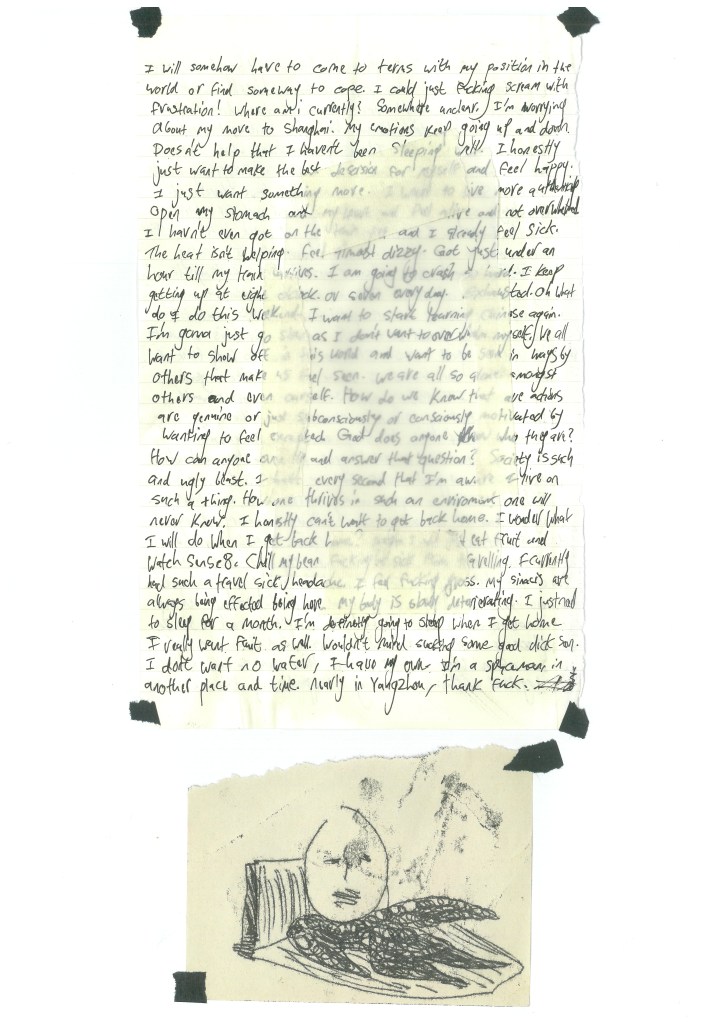 I will somehow have to come to terms with my position in the
world or find someway to cope. I could just fucking scream with
frustration! Where am i currently? Somewhere unclear, I'm worrying
About my move to Shanghai. My emotions keep going up and down.
Doesn't help that I havent been sleeping well. I honestly
just want to make the best for myself and feel happy.
I just want something more. I want to live more
Open my stomach and and not overwhelmed
I havn't even got on the and I already feel sick.
The heat isn't helping. Feel dizzy. Got just under an
hour till my train arrives. I am going to crash hard. I keep
getting up at eight or seven every day. Oh what
do I do this I want to start learning again.
I'm gonna just go as I don't want to myself. We all
want to show off in this world and want to be in ways by
others that make us feel seen. We are all so alone amongst
others and even ourself. How do we know that are actions
are genuine or just subconsciously or consciously motivated by
wanting to feel accepted. God does anyone know who they are?
How can anyone and answer that question? Society is such
and ugly beast. I every second that I'm aware I live on
such a thing. How one thrives in such an enviroment one will
never know. I honestly can't wait to get back home. I wonder what
I will do when I get back eat fruit and
watch Sense8. Chill my bean. travelling. I currently
had such a travel sick headache. I feel fucking gross. My sinuses are
always being effected being here. My body is slowly deteriorating. I just need
to sleep for a month. I'm definetly going to sleep when I get home
I really want fruit as well. Wouldn't mind sucking some good dick son.
I dont want no water, I have my own. I'm a spaceman in
another place and time. nearly in Yangzhou, thank fuck.